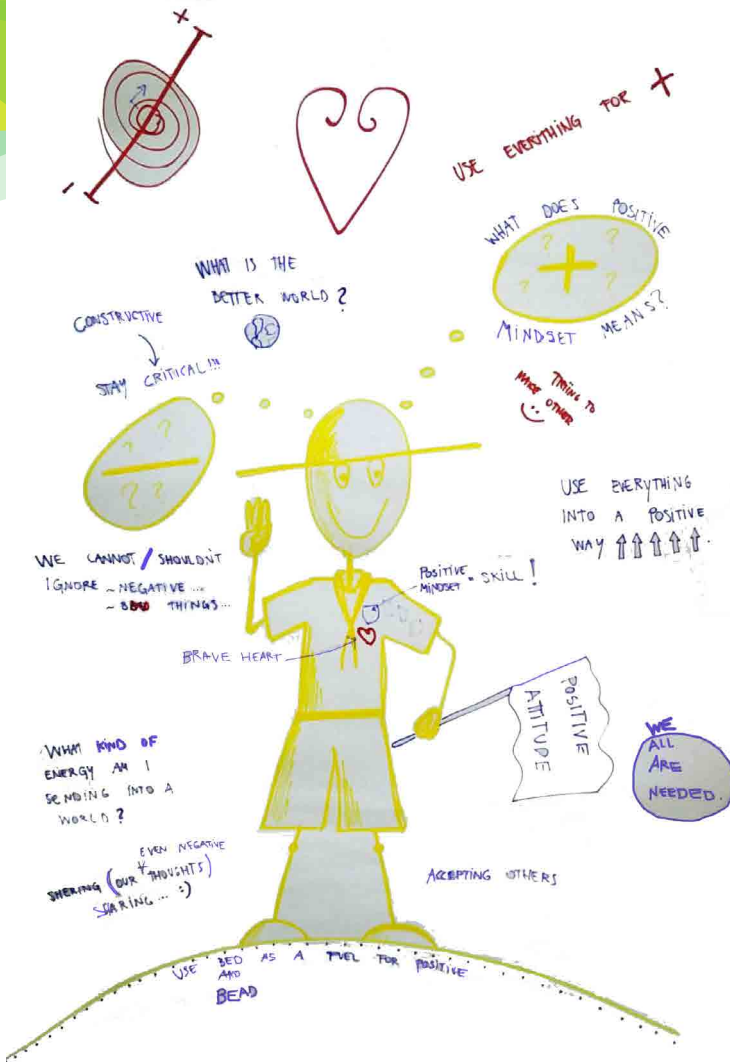 +
-
USE EVERITHING FOR +
WHAT DOES POSITIVE
? ? + ? ?
MINDSET MEANS?
WHAT IS THE
BETTER WORLD?
CONSTRUCTIVE
STAY CRITICAL!!!
? ?
? ?
TRYING TO
MAKE OTHER
USE EVERYTHING
INTO A POSITIVE
WAY
WE CANNOT / SHOULDN'T
IGNORE ~ NEGATIVE ...
~ BAD THINGS...
POSITIVE
MINDSET = SKILL!
BRAVE HEART
POSITIVE
ATTITUDE
WE
ALL
ARE
NEEDED.
WHAT KIND OF
ENERGY AM I
SENDING INTO A
WORLD?
EVEN NEGATIVE
SHERING (OUR THOUGHTS)
SPARING ... :)
ACCEPTING OTHERS
USE BED AS A FUEL FOR POSITIVE
AND
BEAD